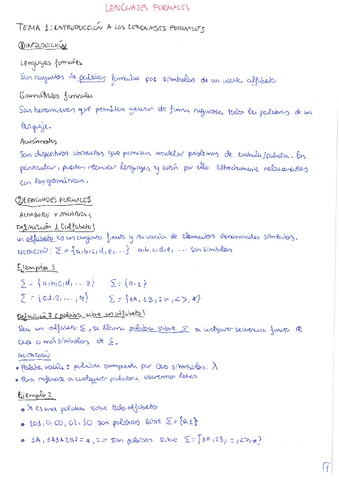 LENGUAJES FORMALES
TEMA 1: INTRODUCCIÓN A LOS LENGUAJES FORMALES
① INTRODUCCIÓN
Lenguajes formales
Son conjuntos de palabras formadas por símbolos de un cierto alfabeto
Gramáticas formales
Son herramientas que permiten generar de forma rigurosa todas las palabras de un
lenguaje.
Autómatas
Son dispositivos abstractos que permiten modelar problemas de entrada/salida. En
particular, pueden reconocer lenguajes y están por ello estrechamente relacionados
con las gramáticas.
② LENGUAJES FORMALES
ALFABETOS Y PALABRAS
Definición 1 (alfabeto)
Un alfabeto es un conjunto finito y no vacío de elementos denominados símbolos.
NOTACIÓN: Σ = {a,b,c,d,e,...} a,b,c,d,e,... son símbolos
Ejemplos 1
Σ = {a,b,c,d,... z} Σ = {0,1}
Σ = {0,1,2,..., 9} Σ = {1A, 2B, i=, <>, *}
Definición 2 (palabra sobre un alfabeto)
Sea un alfabeto Σ, se llama palabra sobre Σ a cualquier secuencia finita de
cero o más símbolos de Σ.
NOTACIÓN
• Palabra vacía = palabra compuesta por cero símbolos: λ
• Para referirse a cualquier palabra usaremos letras
Ejemplo 2
• λ es una palabra sobre todo alfabeto
• 101, 0, 00, 01, 10 son palabras sobre Σ = {0,1}
• 1A, son palabras sobre Σ =
1